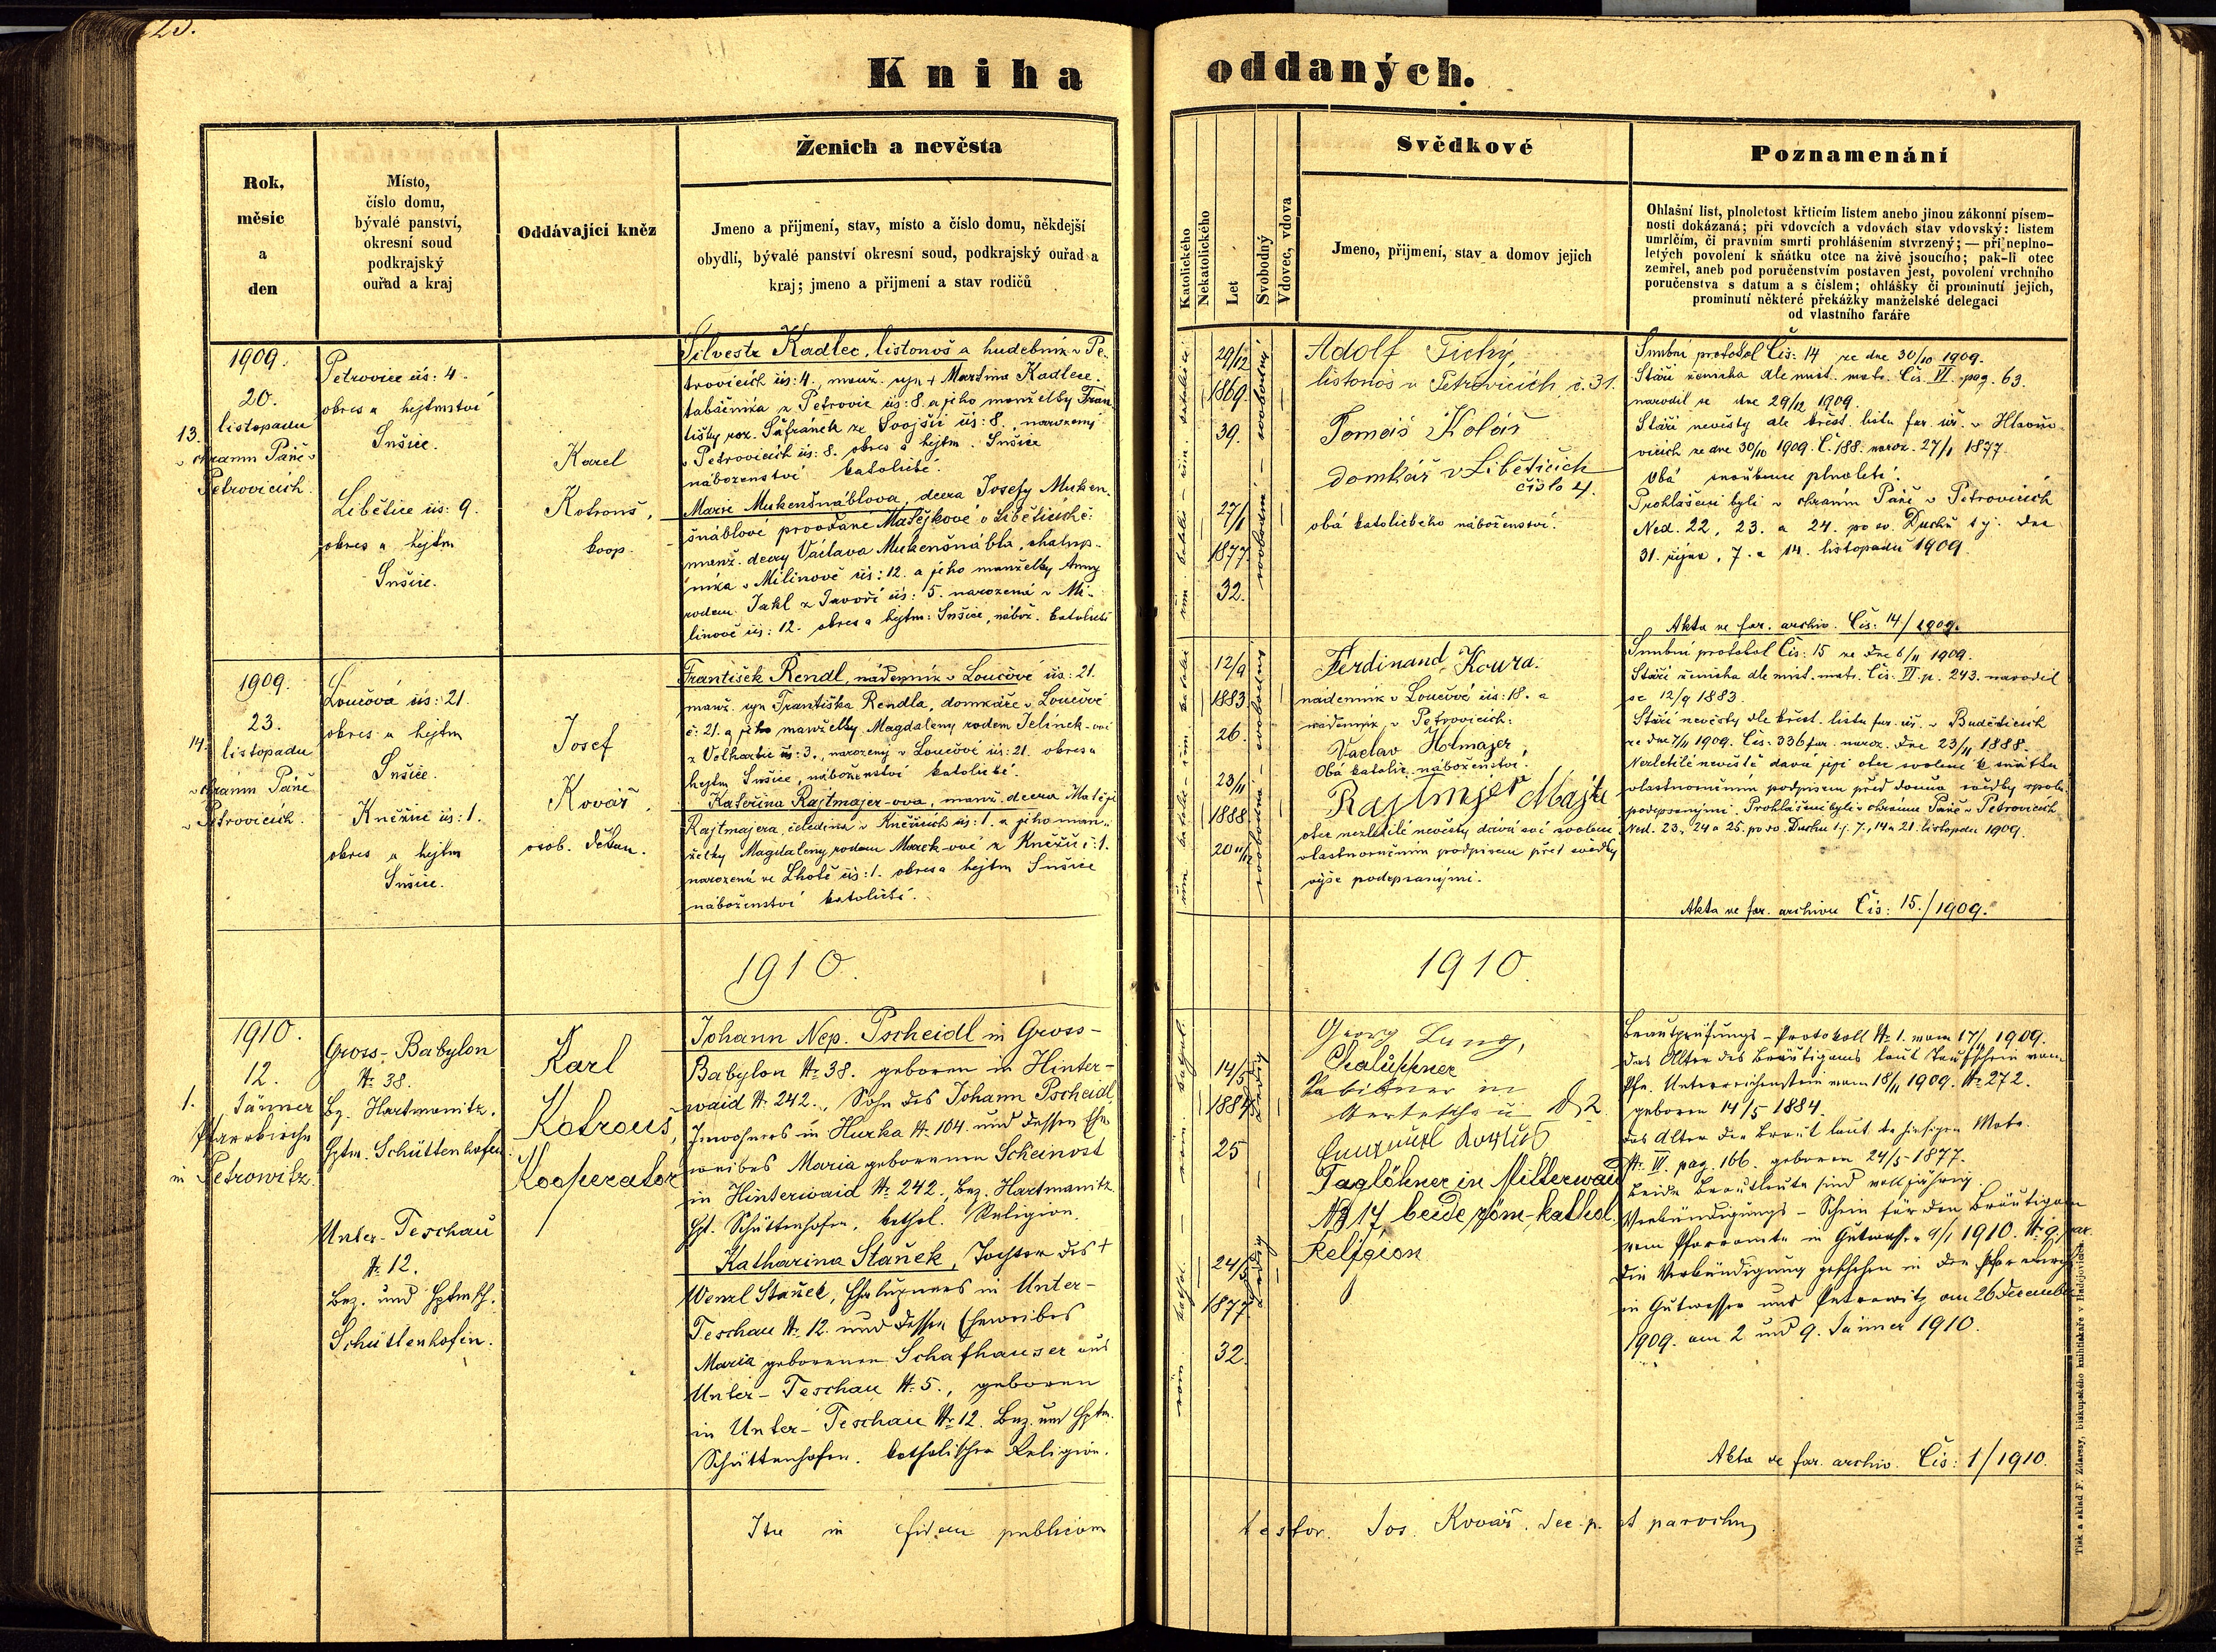 23.
Kniha oddaných.
Rok,
měsíc
a
den
Místo,
číslo domu,
bývalé panství,
okresní soud
podkrajský
ouřad a kraj
Oddávající kněz
Ženich a nevěsta
Jmeno a přijmení, stav, místo a číslo domu, někdejší
obydlí, bývalé panství okresní soud, podkrajský ouřad a
kraj; jmeno a přijmení a stav rodičů
Katolického
Nekatolického
Let
Svobodný
Vdovec, vdova
Svědkové
Jmeno, přijmení, stav a domov jejich
Poznamenání
Ohlašní list, plnoletost křticím listem anebo jinou zákonní písem-
nosti dokázaná; při vdovcích a vdovách stav vdovský: listem
umrlčím, či pravním smrti prohlášením stvrzený; — při neplno-
letých povolení k sňátku otce na živě jsoucího; pak-li otec
zemřel, aneb pod poručenstvím postaven jest, povolení vrchního
poručenstva s datum a s číslem; ohlášky či prominutí jejich,
prominutí některé překážky manželské delegaci
od vlastního faráře
1909.
20.
listopadu
13.
v chrámu Páně v
Petrovicích.
Petrovice čís: 4.
okres a hejtmství
Sušice.
Libětice čís: 9.
okres a hejtm
Sušice.
Karel
Kotrouš,
koop.
Silvestr Kadlec, listonoš a hudebník v Pe-
trovicích čís: 4., manž. syn + Martina Kadlece,
tabáčníka z Petrovic čís: 8. a jeho manželky Fran-
tišky roz. Šafránek ze Svojšic čís: 8., narozený
v Petrovicích čís: 8. okres a hejtm. Sušice
náboženství katolické.
Marie Mukenšnáblova, dcera Josefy Muken-
šnáblové provdané Matějkové v Liběticích č:
manž. dcery Václava Mukenšnábla, chalup-
níka v Milínově čís: 12. a jeho manželky Anny
rodem Jakl z Javoří čís: 5. narozená v Mi-
línově čís: 12. okres a hejtm: Sušice, nábož. katolické
29/12
1869.
39.
27/1
1877.
32.
svobodný — svobodná
Adolf Tichý,
listonoš v Petrovicích, č. 31.
Tomáš Kolář
domkář v Liběticích
číslo 4.
obá katolického náboženství.
Snubní protokol Čís: 14 ze dne 30/10 1909.
Stáří ženicha dle míst. matr. Čís. VI. pag. 63.
narodil se dne 29/12 1909.
Stáří nevěsty dle křest. listu far. úř. v Hlavňo-
vicích ze dne 30/10 1909. Č. 188. naroz. 27/1 1877.
Obá snoubenci plnoletí.
Prohlášeni byli v chrámu Páně v Petrovicích
Ned. 22, 23. a 24. po sv. Duchu t.j. dne
31. října, 7. a 14. listopadu 1909.
Akta ve far. archiv. Čís: 14/1909.
1909.
23.
14.
listopadu
v chrámu Páně
v Petrovicích.
Loučová čís: 21.
okres a hejtm
Sušice.
Kněžice čís: 1.
okres a hejtm
Sušice.
Josef
Kovář,
osob. děkan.
František Rendl, nádenník v Loučové čís: 21.
manž. syn Františka Rendla, domkáře v Loučové
č: 21. a jeho manželky Magdaleny rodem Jelínek-ové
z Velhartic čís: 3., narozený v Loučové čís: 21. okres a
hejtm Sušice, náboženství katolické.
Kateřina Rajtmajer-ova, manž. dcera Matěje
Rajtmajera, čeledína v Kněžicích čís: 1. a jeho man-
želky Magdaleny rodem Marek-ové z Kněžic č: 1.
narozená ve Lhotě čís: 1. okres a hejtm Sušice
náboženství katolické.
12/9
1883.
26.
23/11
1888.
20 11/12
svobodný — svobodná
Ferdinand Kouřa.
nádenník v Loučové čís: 18. a
nádenník v Petrovicích:
Vaclav Hotmajer,
Obá katolic. náboženství.
Rajtmajer Matje
otec nezletilé nevěsty dává své svolení
vlastnoručním podpisem před svědky
výše podepsanými.
Snubní protokol Čís: 15 ze dne 6/11 1909.
Stáří ženicha dle míst. matr. Čís. VI. p. 243. narodil
se 12/9 1883.
Stáří nevěsty dle křest. listu far. úř. v Budětících
ze dne 7/11 1909. Čís. 336 far. naroz. dne 23/11 1888.
Nezletilé nevěstě dává její otec svolení k sňátku
vlastnoručním podpisem před dvěma svědky spolu
podepsanými. Prohlášeni byli v chrámu Páně v Petrovicích
Ned. 23., 24 a 25. po sv. Duchu t.j. 7., 14 a 21. listopadu 1909.
Akta ve far. archivu Čís: 15./1909.
1910.
1910.
1910.
12.
1.
Jänner
Pfarrkirche
in Petrowitz.
Gross-Babylon
№ 38.
Bz. Hartmanitz.
Hptm. Schüttenhofen.
Unter-Teschau
№ 12.
Bez. und Hptmsch.
Schüttenhofen.
Karl
Kotrouš,
Kooperator
Johann Nep. Pscheidl in Gross-
Babylon № 38. geboren in Hinter-
waid № 242., Sohn des Johann Pscheidl,
Inwohners in Hurka № 104. und dessen Ehe-
weibes Maria geborenen Scheinost
in Hinterwaid № 242., Bez. Hartmanitz
Hpt. Schüttenhofen, kathol. Religion.
Katharina Staňek, Tochter des +
Wenzl Staňek, Chalupners in Unter-
Teschau № 12. und dessen Eheweibes
Maria geborenen Schafhauser aus
Unter-Teschau № 5., geboren
in Unter-Teschau № 12. Bez. und Hptm.
Schüttenhofen. katholischer Religion.
14/5
1884
25
24/5
1877.
32.
ledig — ledig
Georg Lung,
Chalupner
№ 2
Taglöhner in Mitterwaid
№ 17 beide röm-kathol.
Religion
Brautprüfungs-Protokoll № 1. vom 17/11 1909.
Das Alter des Bräutigams laut Taufschein vom
Pfr. Unterreichenstein vom 18/11 1909. № 272.
geboren 14/5 1884.
Das Alter der Braut laut der hiesigen Matr.
№ VI. pag. 166. geboren 24/5 1877.
Beide Brautleute sind volljährig.
Verkündigungs-Schein für den Bräutigam
vom Pfarramte in Gutwasser 9/1 1910. № 9.
Die Verkündigung geschehen in der Pfarrkirche
in Gutwasser und Petrowitz am 26 December
1909. am 2 und 9. Jänner 1910.
Akta ve far. archiv. Čís: 1/1910.
Ita in fidem publicam testor. Jos. Kovář. dec. p. et parochus
Tisk a sklad F. Zdarssy, biskupského knihtiskaře v Budějovicích.